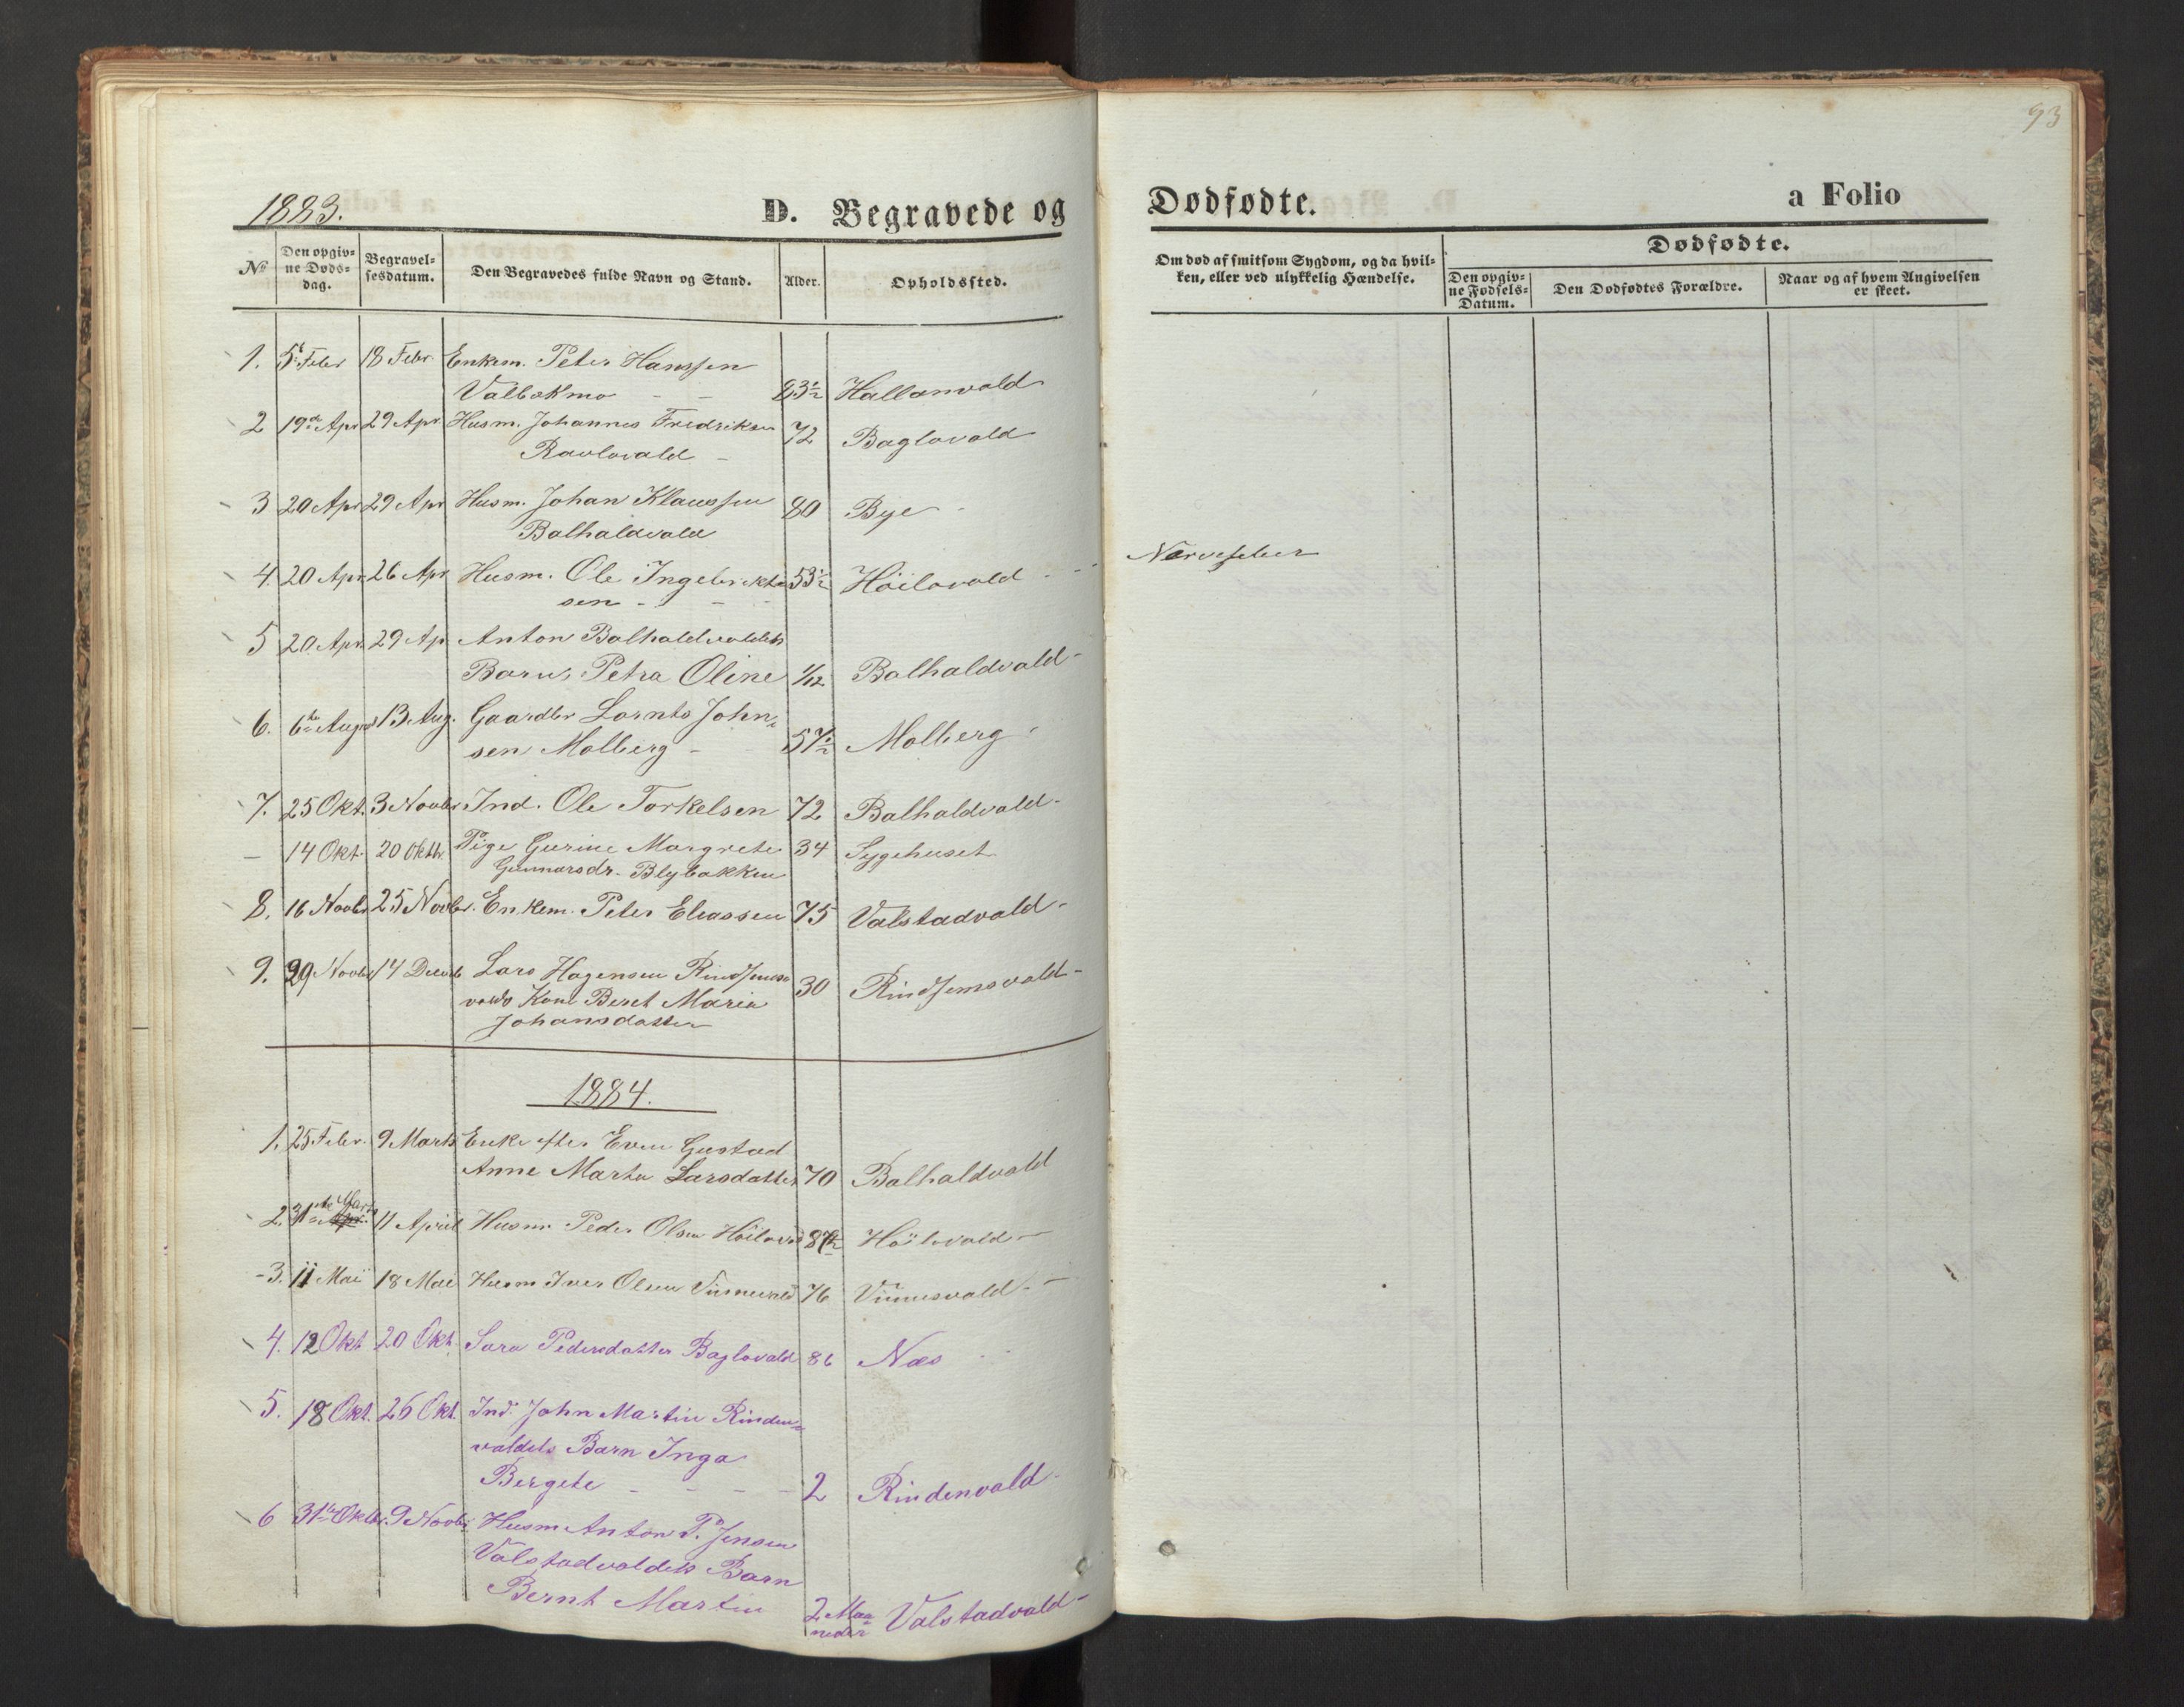 93
1883.
D. Begravede og Dødfødte.
a Folio
No
Den opgiv=
ne Døds=
dag.
Begravel=
sesdatum.
Den Begravedes fulde Navn og Stand.
Alder.
Opholdssted.
Om død af smitsom Sygdom, og da hvil=
ken, eller ved ulykkelig Hændelse.
Dødfødte.
Den opgiv=
ne Fødsels=
Datum.
Den Dødfødtes Forældre.
Naar og af hvem Angivelsen
er skeet.
1. 5t Febr 18 Febr. Enkem. Peter Hanssen
Valbækmo - - 83½ Hallanvald
2 19de Apr 29 Apr Husm. Johannes Fredriksen 72 Baglovald
Ravlovald -
3 20 Apr 29 Apr Husm. Johan Klaussen 80 Bye
Balhaldvald
4. 20 Apr 26 Apr Husm. Ole Ingebrikt 53½ Höilovald Nervefeber
sen - - -
5 20. Apr. 29 Ap. Anton Balhaldvaldets
Barn, Petra Oline 1/12 Balhaldvald
6. 6te August 13 Aug. Gaardbr Lornts John=
sen Molberg - 57½ Molberg
7. 25 Okt. 3 Novbr Ind. Ole Torkelsen 72 Balhaldvald
- 14 Okt 20 Oktbr. Pige Gurine Margrete 34 Sygehuset
Gunnarsdr. Blybakken
8. 16 Novbr 25 Novbr. Enkem. Peter Eliassen 75 Valstadvald
9. 29 Novbr 14 Decbr Lars Hagensen Rindsems
valds Kone Beret Maria 30 Rindsemsvald
Johansdatter
1884.
1. 25 Febr. 9 Marts Enke efter Even Gustad
Anne Marta Larsdatter 70 Balhaldvald
2. 31te Marts 11 April Husm. Peder Olsen Höilovald 87½ Höilovald
3. 11 Mai 18 Mai Husm Iver Olsen Vinnesvald 76 Vinnesvald
4. 12 Okt 20 Okt. Sara Pedersdatter Baglovald 86 Næs
5. 18 Okt. 26 Okt. Ind. John Martin Rinden=
valdets Barn Inga
Bergete - - - - 2 Rindenvald
6 31te Oktbr. 9 Novbr. Husm Anton P. Jensen
Valstadvaldets Barn
Bernt Martin 2 Maa
neder Valstadvald